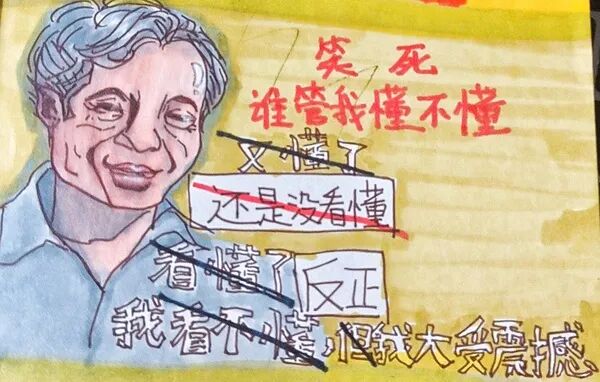 笑 死
谁管我懂不懂
又懂了
还是没看懂
看懂了反正
我看不懂,但我大受震撼